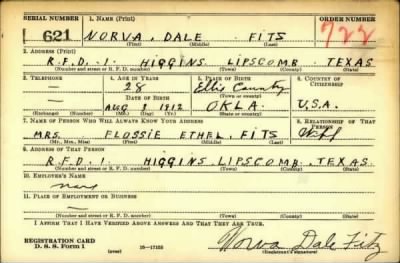 SERIAL NUMBER 1. NAME (Print) ORDER NUMBER
621 NORVA DALE FITS 722
(First) (Middle) (Last)
2. ADDRESS (Print)
R.F.D. 1. HIGGINS LIPSCOMB TEXAS
(Number and street or R. F. D. number) (Town) (County) (State)
3. TELEPHONE 4. AGE IN YEARS 5. PLACE OF BIRTH 6. COUNTRY OF CITIZENSHIP
— 28 Ellis County
DATE OF BIRTH (Town or county)
— AUG 8 1912 OKLA. U.S.A.
(Exchange) (Number) (Mo.) (Day) (Yr.) (State or country)
7. NAME OF PERSON WHO WILL ALWAYS KNOW YOUR ADDRESS 8. RELATIONSHIP OF THAT PERSON
MRS. FLOSSIE ETHEL FITS Wife
(Mr., Mrs., Miss) (First) (Middle) (Last)
9. ADDRESS OF THAT PERSON
R.F.D. 1. HIGGINS LIPSCOMB. TEXAS
(Number and street or R. F. D. number) (Town) (County) (State)
10. EMPLOYER'S NAME
11. PLACE OF EMPLOYMENT OR BUSINESS
—
(Number and street or R. F. D. number) (Town) (County) (State)
I AFFIRM THAT I HAVE VERIFIED ABOVE ANSWERS AND THAT THEY ARE TRUE.
REGISTRATION CARD
D. S. S. Form 1 16—17105 Norva Dale Fitz
(over) (Registrant's signature)